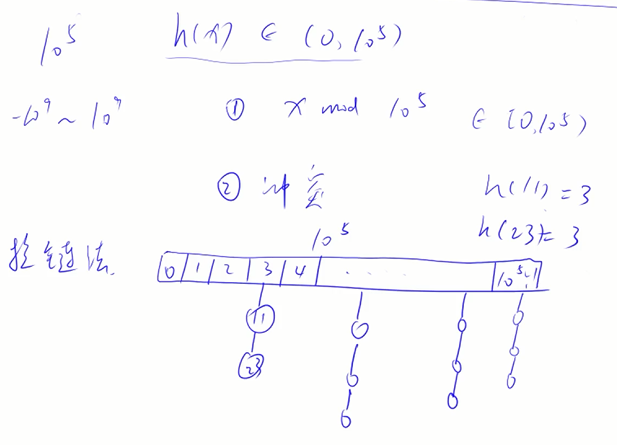 10⁵ h(x) ∈ (0, 10⁵)
-10⁹ ~ 10⁹ ① x mod 10⁵ ∈ [0, 10⁵)
② 冲突 h(11) = 3
h(23) = 3
10⁵
拉链法
0 1 2 3 4 ..... 10⁵-1
11
23